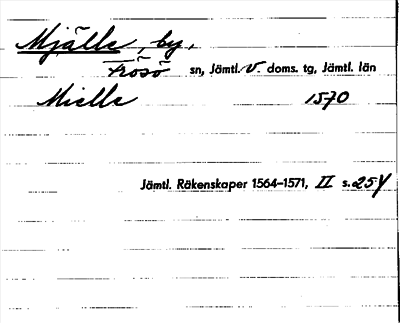 Mjälle, by,
Frösö sn, Jämtl. v. doms. tg, Jämtl. län
Mielle 1570
Jämtl. Räkenskaper 1564–1571, II s.